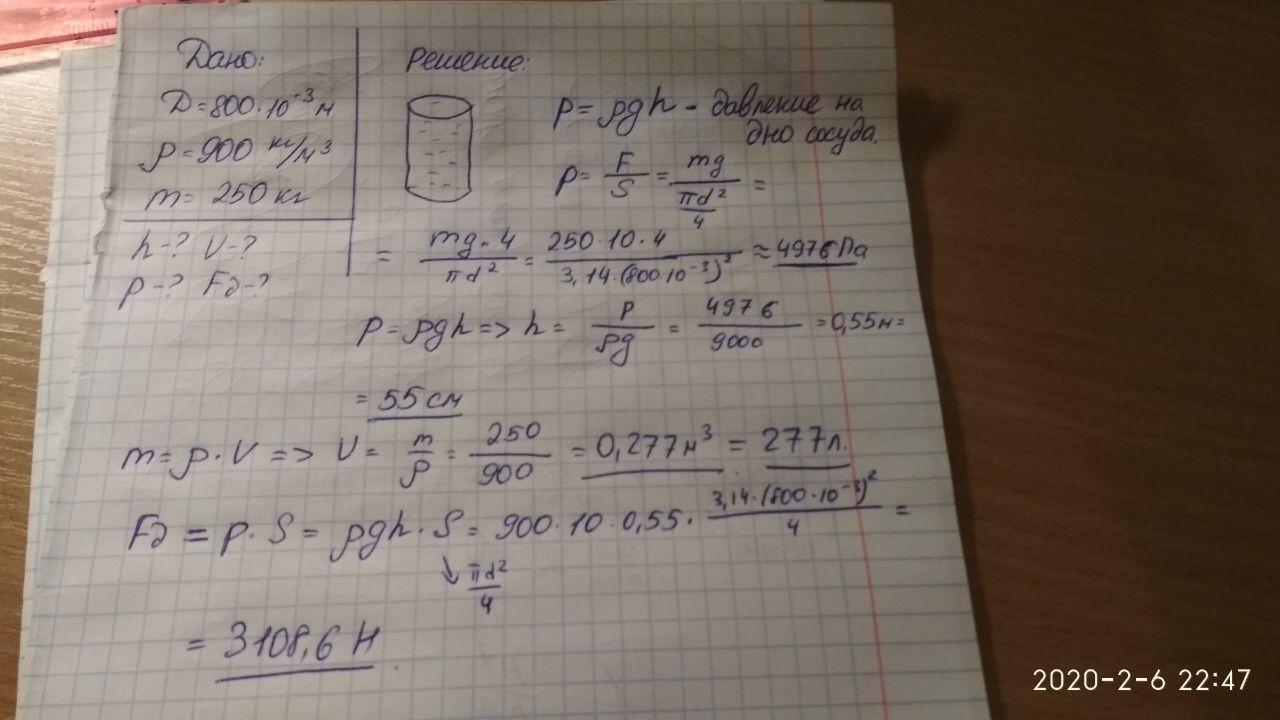 Дано:
D=800·10⁻³м
ρ=900 кг/м³
m=250 кг
h-? V-?
p-? Fд-?
Решение:
p=ρgh - давление на
дно сосуда.
p= F/S = mg/(πd²/4) =
= mg·4/πd² = 250·10·4/3,14·(800·10⁻³)² ≈ 4976 Па
p=ρgh => h= p/ρg = 4976/9000 = 0,55м=
= 55 см
m=ρ·V => V= m/ρ = 250/900 = 0,277м³ = 277л.
Fд = p·S = ρgh·S = 900·10·0,55· 3,14·(800·10⁻³)²/4 =
↓ πd²/4
= 3108,6 Н
2020-2-6 22:47